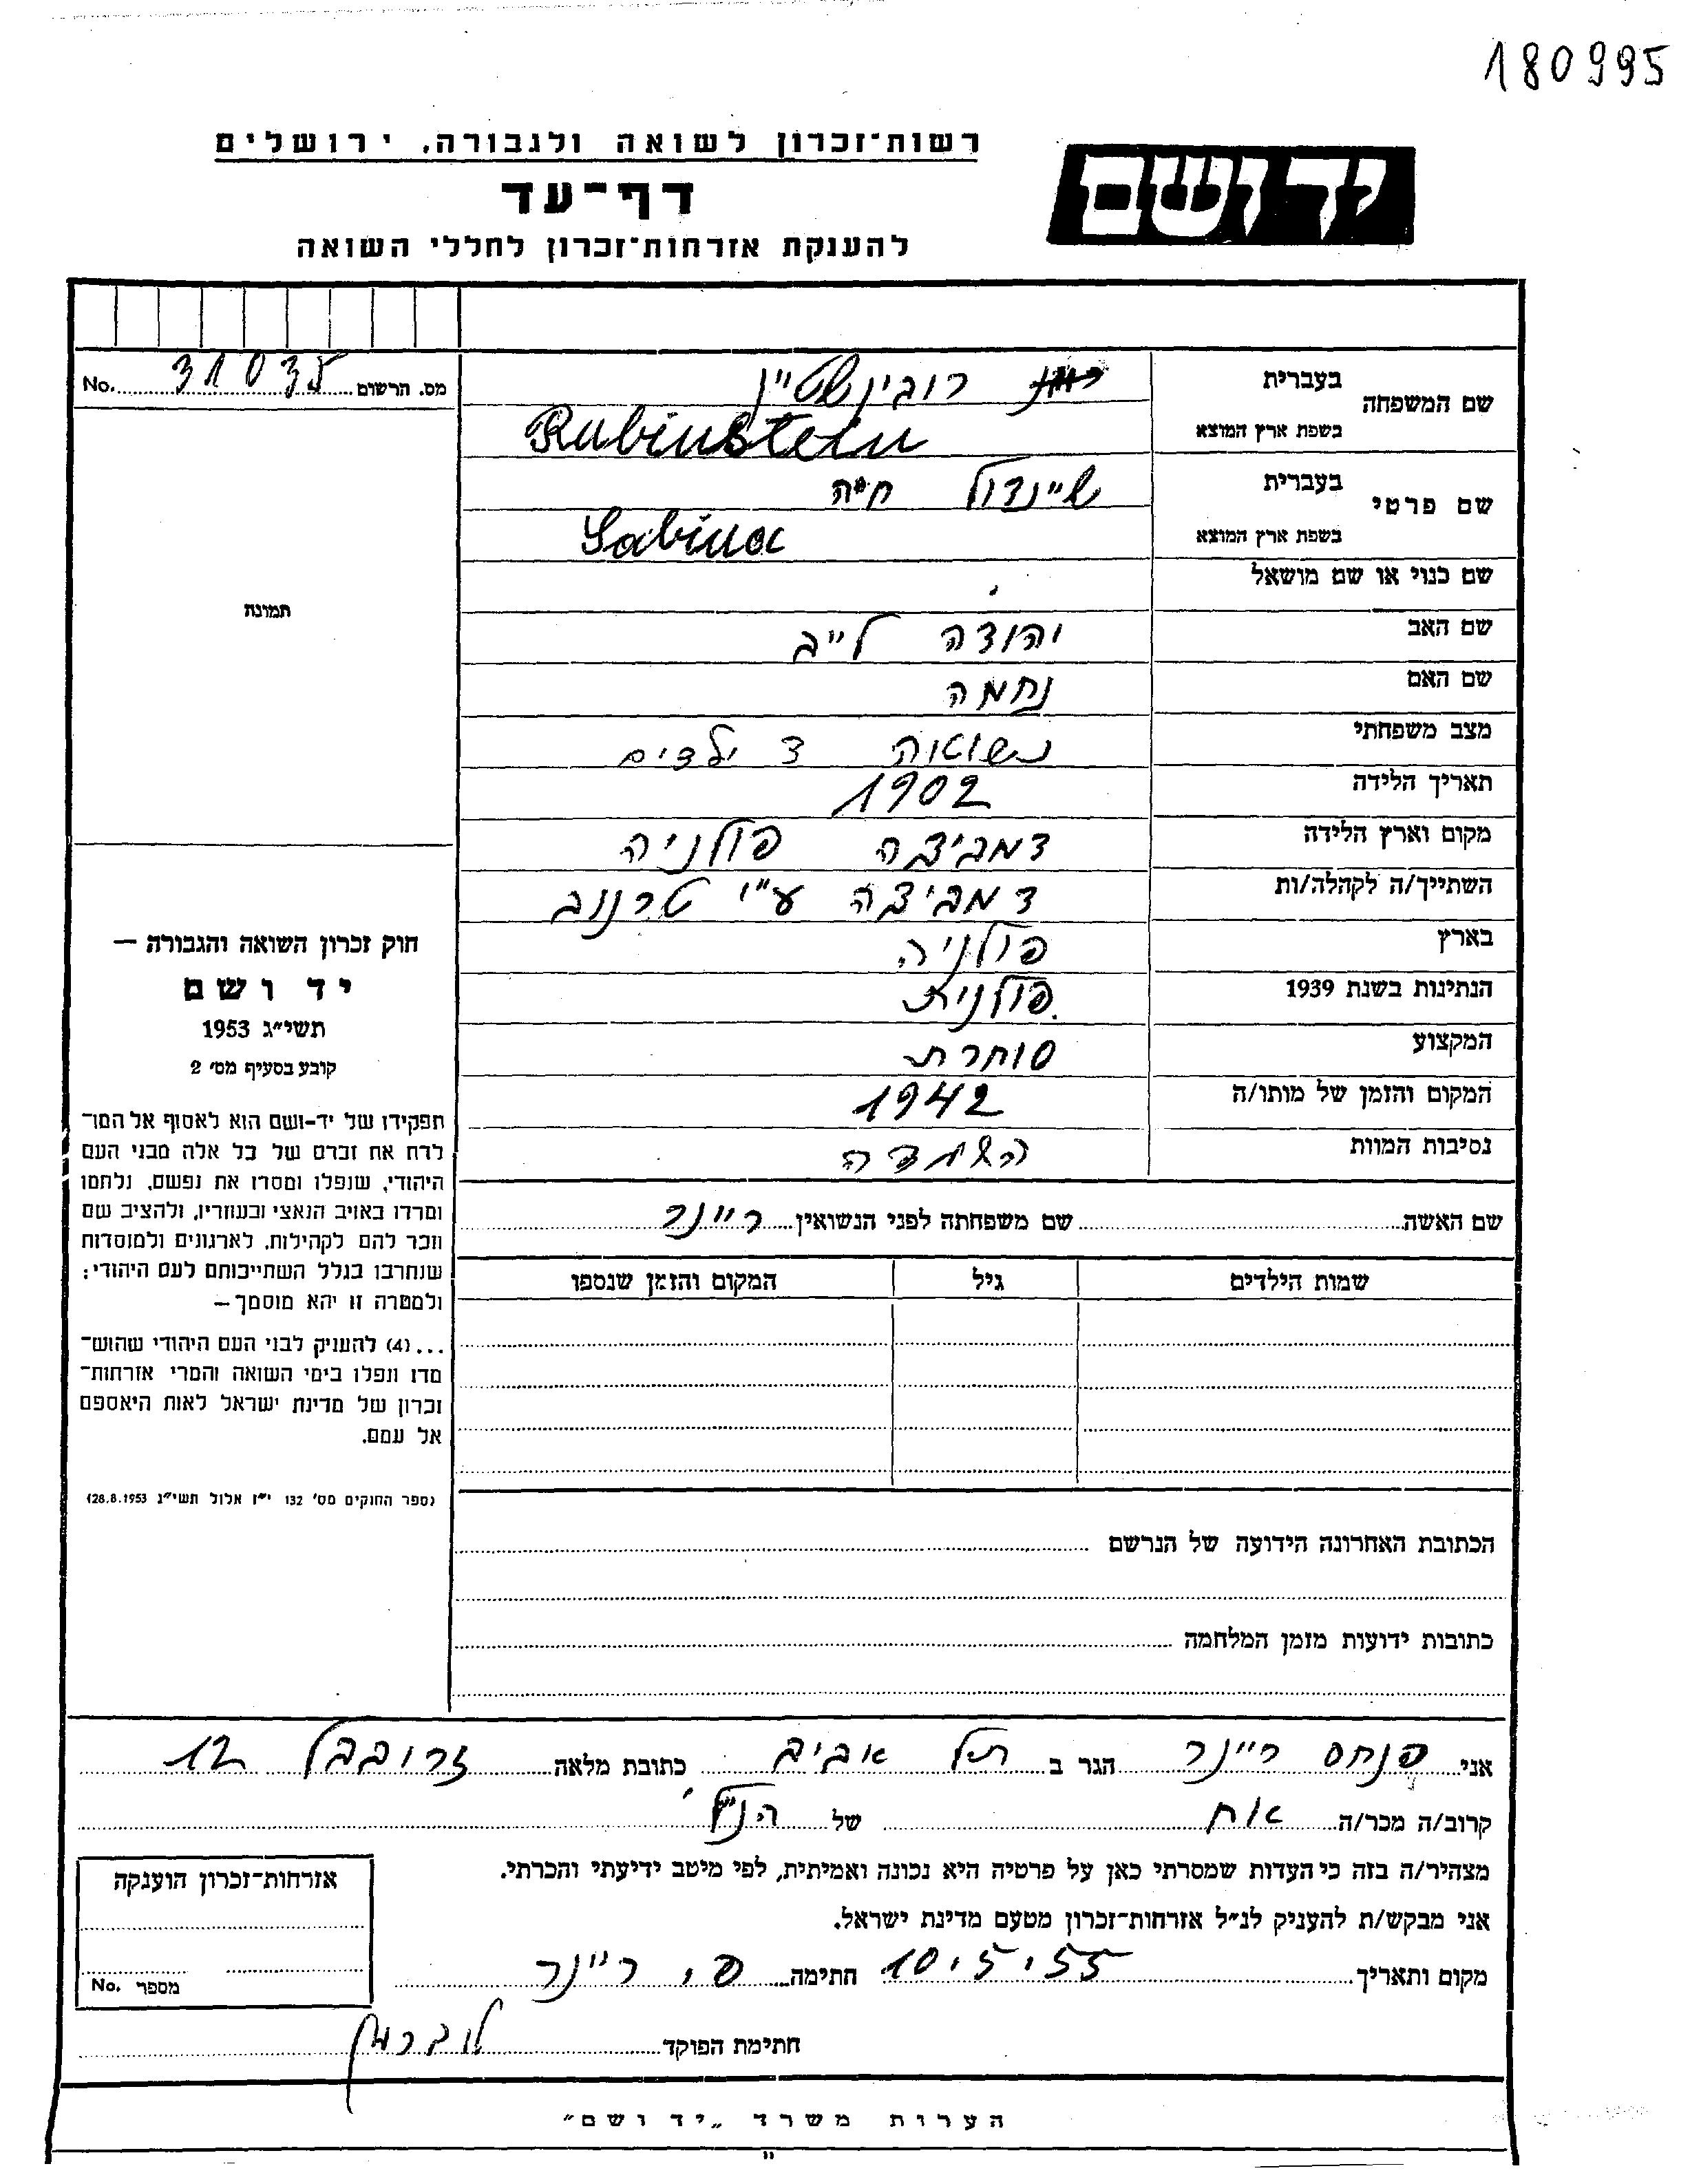 180995
רשות־זכרון לשואה ולגבורה. ירושלים
יד ושם
דף־עד
להענקת אזרחות־זכרון לחללי השואה
מס. הרשום 31035 No.
שם המשפחה
בעברית
רובינשטיין
בשפת ארץ המוצא
Rubinstein
שם פרטי
בעברית
שיינדול חיה
בשפת ארץ המוצא
Sabina
שם כנוי או שם מושאל
תמונה
שם האב יהודה לייב
שם האם נחמה
מצב משפחתי נשואה 3 ילדים
תאריך הלידה 1902
מקום וארץ הלידה דמביצה פולניה
השתייך/ה לקהלה/ות דמביצה ע"י טרנוב
בארץ פולניה
הנתינות בשנת 1939 פולנית
המקצוע סוחרת
המקום והזמן של מותו/ה 1942
נסיבות המוות השמדה
שם האשה שם משפחתה לפני הנשואין ריינר
שמות הילדים גיל המקום והזמן שנספו
חוק זכרון השואה והגבורה —
יד ושם
תשי"ג 1953
קובע בסעיף מס' 2
תפקידו של יד-ושם הוא לאסוף אל המו־
לדת את זכרם של כל אלה מבני העם
היהודי, שנפלו ומסרו את נפשם, נלחמו
ומרדו באויב הנאצי ובעוזריו, ולהציב שם
וזכר להם לקהילות, לארגונים ולמוסדות
שנחרבו בגלל השתייכותם לעם היהודי;
ולמטרה זו יהא מוסמך—
...(4) להעניק לבני העם היהודי שהוש־
מדו ונפלו בימי השואה והמרי אזרחות־
זכרון של מדינת ישראל לאות היאספם
אל עמם.
(ספר החוקים מס' 132 י"ז אלול תשי"ג 28.8.1953)
הכתובת האחרונה הידועה של הנרשם
כתובות ידועות מזמן המלחמה
אני פנחס ריינר הגר ב תל אביב כתובת מלאה זרובבל 12
קרוב/ה מכר/ה אח של הנ"ל
מצהיר/ה בזה כי העדות שמסרתי כאן על פרטיה היא נכונה ואמיתית, לפי מיטב ידיעתי והכרתי.
אני מבקש/ת להעניק לנ"ל אזרחות־זכרון מטעם מדינת ישראל.
מקום ותאריך 10.5.55 חתימה פ. ריינר
חתימת הפוקד
אזרחות־זכרון הוענקה
מספר No.
הערות משרד „יד ושם"